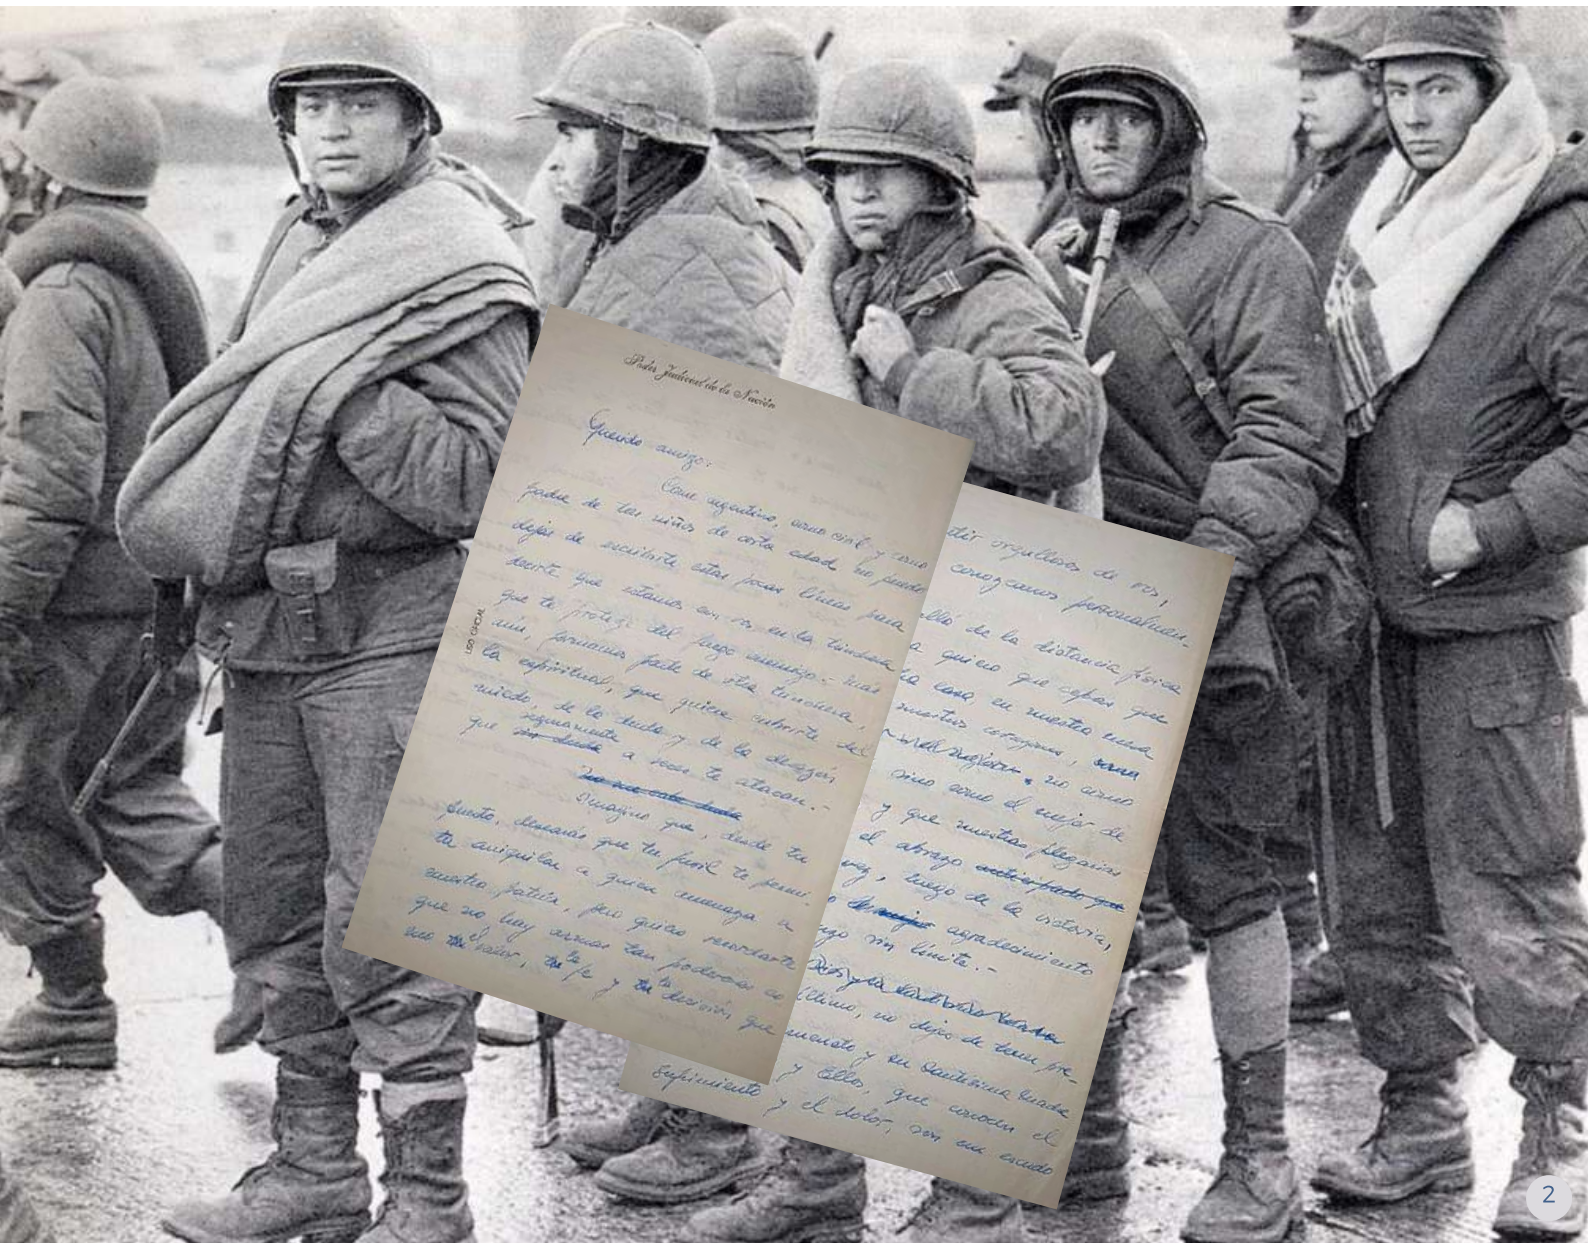 Poder Judicial de la Nación
Querido amigo:
Como argentino, como civil y como
padre de tres niños de corta edad no puedo
dejar de escribirte estas pocas líneas para
decirte que estamos con vos en la trinchera
que te protege del fuego enemigo.- Más
aún, formamos parte de otra trinchera,
la espiritual, que quiere cubrirte del
miedo, de la duda y de la desazón
que seguramente a veces te atacan.-
Imagino que, desde tu
puesto, desearás que tu fusil te permi-
ta aniquilar a quien amenaza a
nuestra patria, pero quiero recordarte
que no hay armas tan poderosas co
mo el valor, la fe y la decisión, que
USO OFICIAL
tir orgullosos de vos,
conozcamos personalmen-
allá de la distancia física
a quiero que sepas que
casa, en nuestra mesa
nuestros corazones, como
no como
sino como el mejor de
y que nuestras plegarias
el abrazo anticipado que
vez, luego de la victoria,
agradecimiento
sin límite.-
último, no dejes de tener pre-
y su Santísima Madre
y Ellos, que conocen el
sufrimiento y el dolor, son un escudo
2